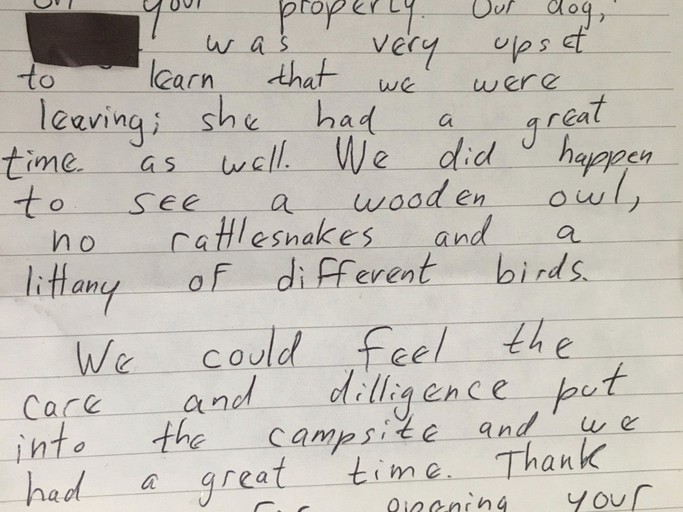 on your property. Our dog,
was very upset
to learn that we were
leaving; she had a great
time as well. We did happen
to see a wooden owl,
no rattlesnakes and a
littany of different birds.
We could feel the
care and dilligence put
into the campsite and we
had a great time. Thank
for opening your